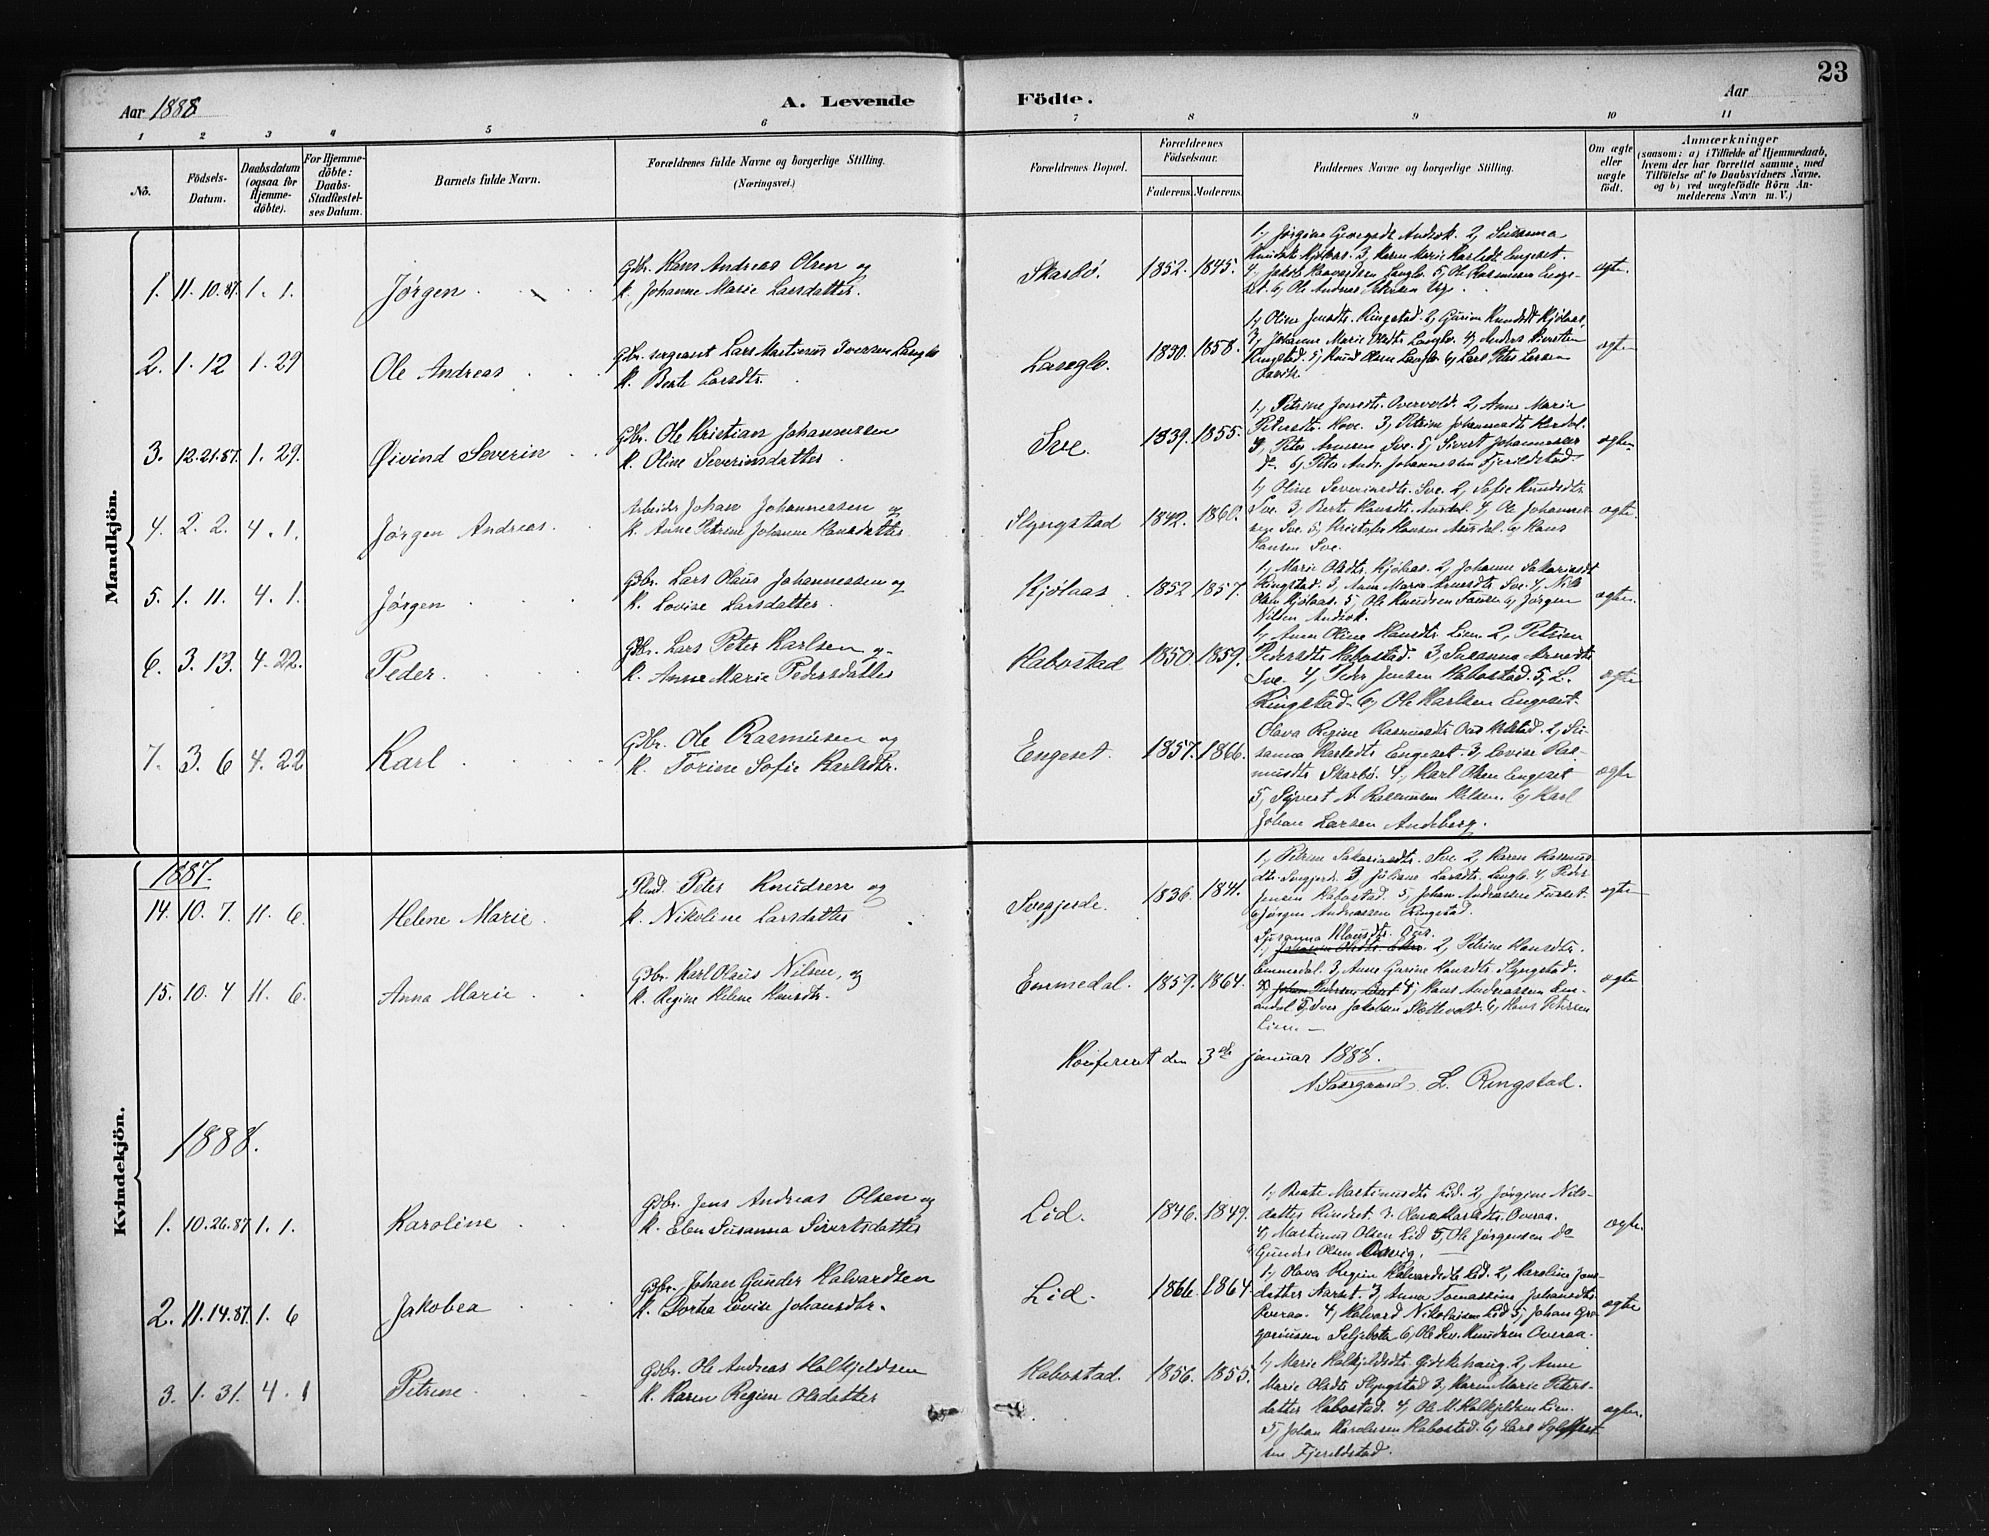 23
Aar 1888
A. Levende Födte.
Aar
1 2 3 4 5 6 7 8 9 10 11
No.
Födsels-Datum.
Daabsdatum (ogsaa for Hjemme-döbte).
For Hjemme-döbte: Daabs-Stadfæstel-ses Datum.
Barnets fulde Navn.
Forældrenes fulde Navne og borgerlige Stilling.
(Næringsvei.)
Forældrenes Bopæl.
Forældrenes Födselsaar.
Faderens. Moderens.
Faddernes Navne og borgerlige Stilling.
Om ægte eller uægte födt.
Anmærkninger
(saasom: a) i Tilfælde af Hjemmedaab,
hvem der har forrettet samme, med
Tilföielse af to Daabsvidners Navne.
og b) ved uægtefödte Börn An-
melderens Navn m.V.)
Mandkjön.
1. 11. 10. 87. 1. 1. Jørgen
Gbr. Hans Andreas Olsen og
k. Johanne Marie Larsdatter.
Skarbø. 1852. 1845.
Knudsdt. Kjølaas. 3, Karen Marie Karlsdt. Engeset.
ægte.
2. 1. 12 1. 29 Ole Andreas
Gbr. sergeant Lars Martinus Iversen Langlo
k. Berte Larsdtr.
Langlo. 1858.
1, Oline Jensdtr. Ringstad. 2, Gurine Knudsdt Kjølaas,
3, Johanne Marie Olsdtr Langlo. 4, Anders
Ringstad. 5, Knud Olsen Langlo. 6, Karl Peter Larsen
ægte
3. 12. 21. 87. 1. 29. Øivind Severin
Gbr. Ole Kristian Johannessen
k. Oline Severinsdatter.
Sve. 1839. 1855.
1, Petrine Jonsdtr. Overvold. 2, Anne Marie
Petersdt. Hove. 3, Petrine Johannesdt
4, Peter Arnesen Sve. 5, Sivert Johannessen
do. 6, Peter Andr. Johannessen Fjerildstad.
ægte.
4. 2. 2. 4. 1. Jørgen Andreas.
Arbeider Johan Johannesen og
k. Anne Petrine Johanne Hansdatter.
Slyngstad 1842. 1860.
1, Oline Severinsdtr. Sve. 2, Sofie Knudsdtr.
Sve. 3, Berte Hansdt. 4, Ole Johannes-
sen Sve. 5, Kristofer Hansen 6, Hans
Hansen Sve.
ægte
5. 1. 11. 4. 1. Jørgen
Gbr. Lars Olaus Johannessen og
k. Lovise Larsdatter.
Kjølaas 1852 1857.
1, Marie Olsdtr. Kjølaas. 2, Johanne Sakariasdt
Ringstad. 3, Anne Marie Arnesdtr. Sve. 4, Nils
Olsen Kjølaas. 5, Ole Knudsen 6, Jørgen
Nilsen
ægte.
6. 3. 13. 4. 22. Peder
Gbr. Lars Peter Karlsen og
k. Anne Marie Pedersdatter
Habostad 1850 1859.
1, Anne Oline Hansdtr. Lien. 2, Petrine
Pedersdtr Habostad. 3, Susanna Arnesdtr
Sve. 4, Peder Jensen Habostad. 5, L.
Ringstad. 6, Ole Karlsen Engeset.
ægte
7. 3. 6 4. 22 Karl
Gbr. Ole Rasmusen og
k. Torine Sofie Karlsdtr.
Engeset. 1857. 1866.
Olava Regine Rasmusdtr 2, Su-
sanna Karlsdtr. Engeset. 3, Lovise Ras-
musdtr Skarbø. 4, Karl Olsen Engeset
5, Sivert A. Rasmusen 6, Karl
Johan Larsen Andeberg.
ægte
Kvindekjön.
1887.
14. 10. 7. 11. 6. Helene Marie.
Peter Knudsen og
k. Nikoline Larsdatter
Svegjerde. 1836. 1841.
1, Petrine Sakariasdtr. Sve. 2, Karen Rasmus-
dtr. Svegjerd. 3, Juliane Larsdtr. Langlo. 4, Peder
Jensen Habostad. 5, Johan Andreassen
6, Jørgen Andreassen Ringstad.
ægte
15. 10. 4 11. 6. Anna Marie
Gbr. Karl Olaus Nilsen, og
k. Regine Helene Hansdtr.
Emmedal. 1859. 1864.
Susanna Klausdtr.
2, Petrine Hansdtr.
Emmedal. 3, Anne Gurine Hansdtr. Slyngstad.
4, Hans Andreassen Em-
medal 5, Iver Jakobsen Slettevold. 6, Hans Petersen
Lien.
ægte
Konfereret den 3die januar 1888.
L. Ringstad.
1888.
1. 10. 26. 87. 1. 1. Karoline
Gbr. Jens Andreas Olsen og
k. Elen Susanna Sivertsdatter
Lid. 1846. 1849.
1, Beate Martinusdtr Lid. 2, Jørgine Nils-
datter 3. Olava Karlsdtr. Overaa.
4, Martinus Olsen Lid 5, Ole Jørgensen do
Gunder Olsen
ægte.
2. 11. 14. 87. 1. 6 Jakobea
Gbr. Johan Gunder Halvardsen
k. Dortea Lovise Johansdtr.
Lid. 1866. 1864.
1, Olava Regine Halvardsdt Lid. 2, Karoline Jons-
datter 3, Anna Tomassine Johansdtr
Overaa. 4, Halvard Nikolaisen Lid 5, Johan Gre-
goriussen Seljebotn 6, Ole Sev. Knudsen Overaa.
ægte
3. 1. 31. 4. 1 Petrine
Gbr. Ole Andreas Halkjeldsen
k. Karen Regine Olsdatter
Habostad. 1856. 1855.
1, Marie Halkjeldsdtr. Gjekehaug. 2, Anne
Marie Olsdtr Slyngstad 3, Karen Marie Peters-
datter Habostad. 4, Ole M. Halkjeldsen Lien.
5, Johan Karolusen Habostad. 6, Lars
sen Fjerildstad.
ægte.